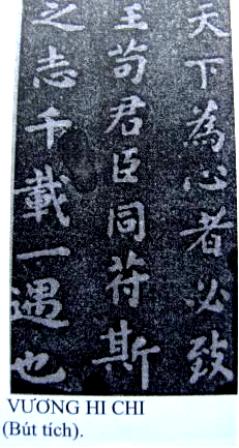 天下為心者必致
王苟君臣同符斯
之志千載一遇也
VƯƠNG HI CHI
(Bút tích).